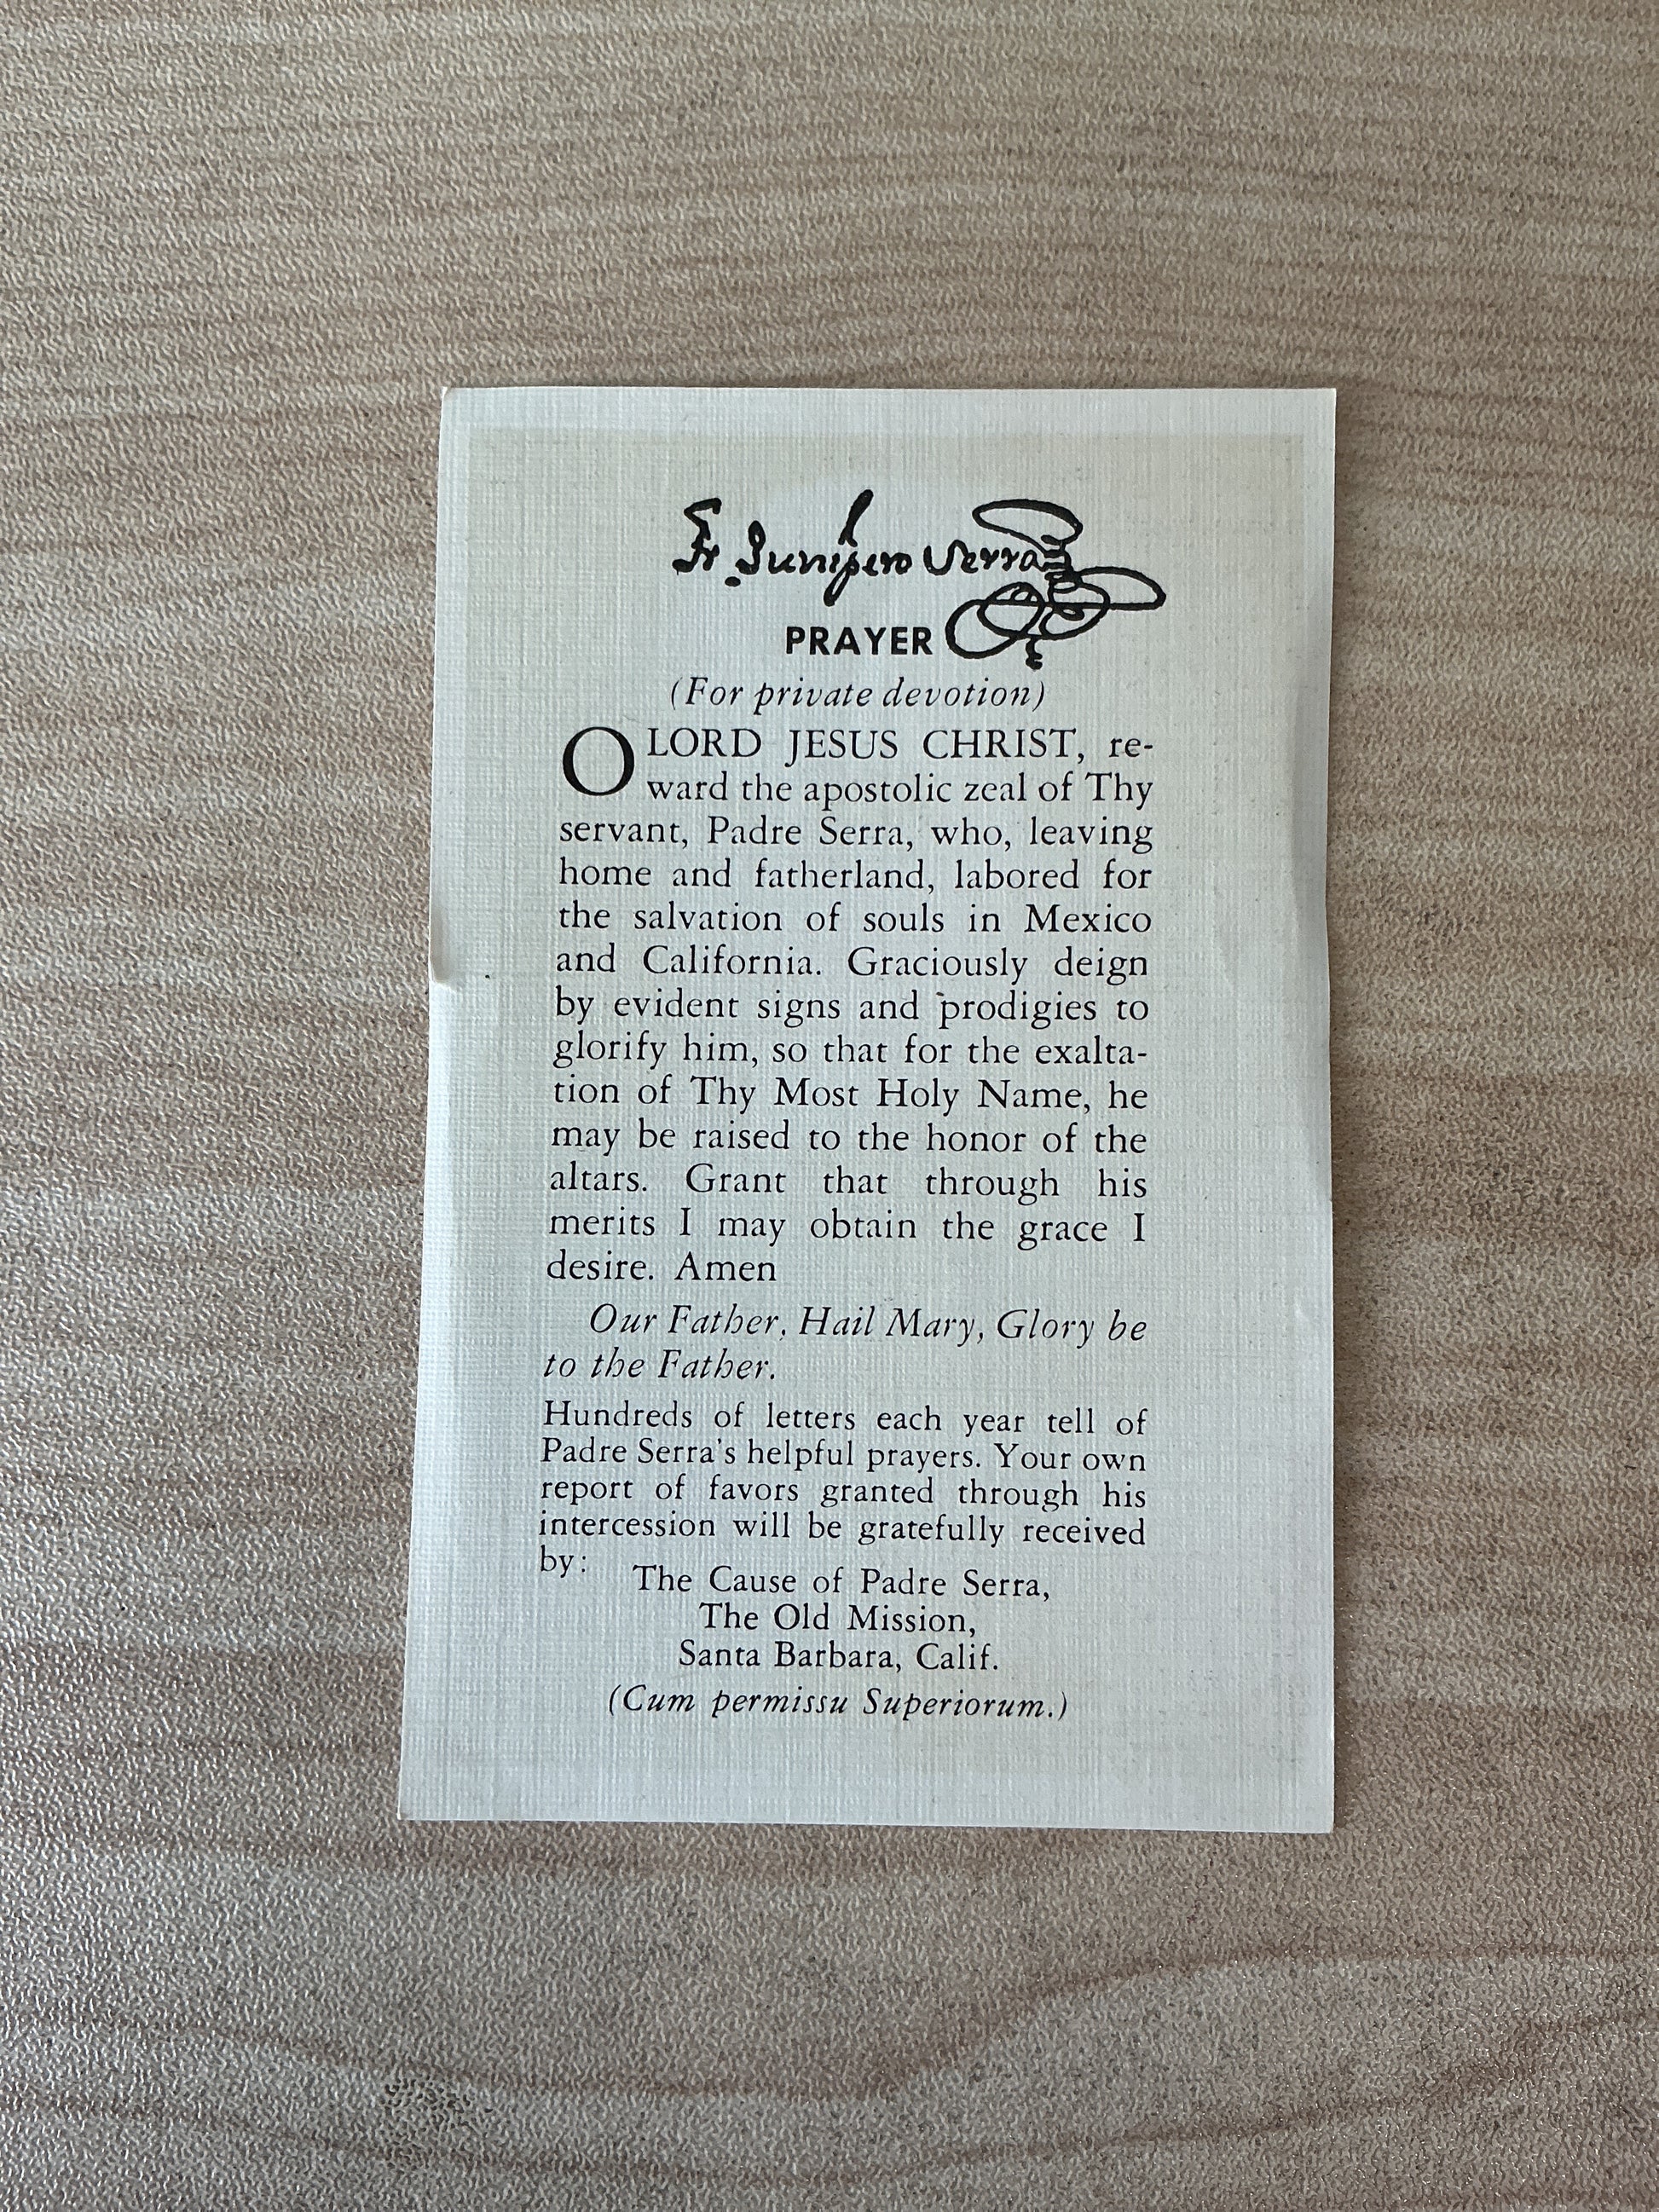 Fr. Junipero Serra
PRAYER
(For private devotion)
O LORD JESUS CHRIST, re-
ward the apostolic zeal of Thy
servant, Padre Serra, who, leaving
home and fatherland, labored for
the salvation of souls in Mexico
and California. Graciously deign
by evident signs and prodigies to
glorify him, so that for the exalta-
tion of Thy Most Holy Name, he
may be raised to the honor of the
altars. Grant that through his
merits I may obtain the grace I
desire. Amen
Our Father, Hail Mary, Glory be
to the Father.
Hundreds of letters each year tell of
Padre Serra's helpful prayers. Your own
report of favors granted through his
intercession will be gratefully received
by:
The Cause of Padre Serra,
The Old Mission,
Santa Barbara, Calif.
(Cum permissu Superiorum.)